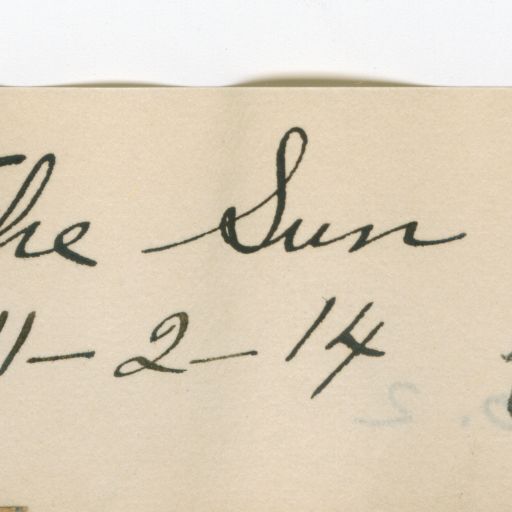 The Sun
11-2-14